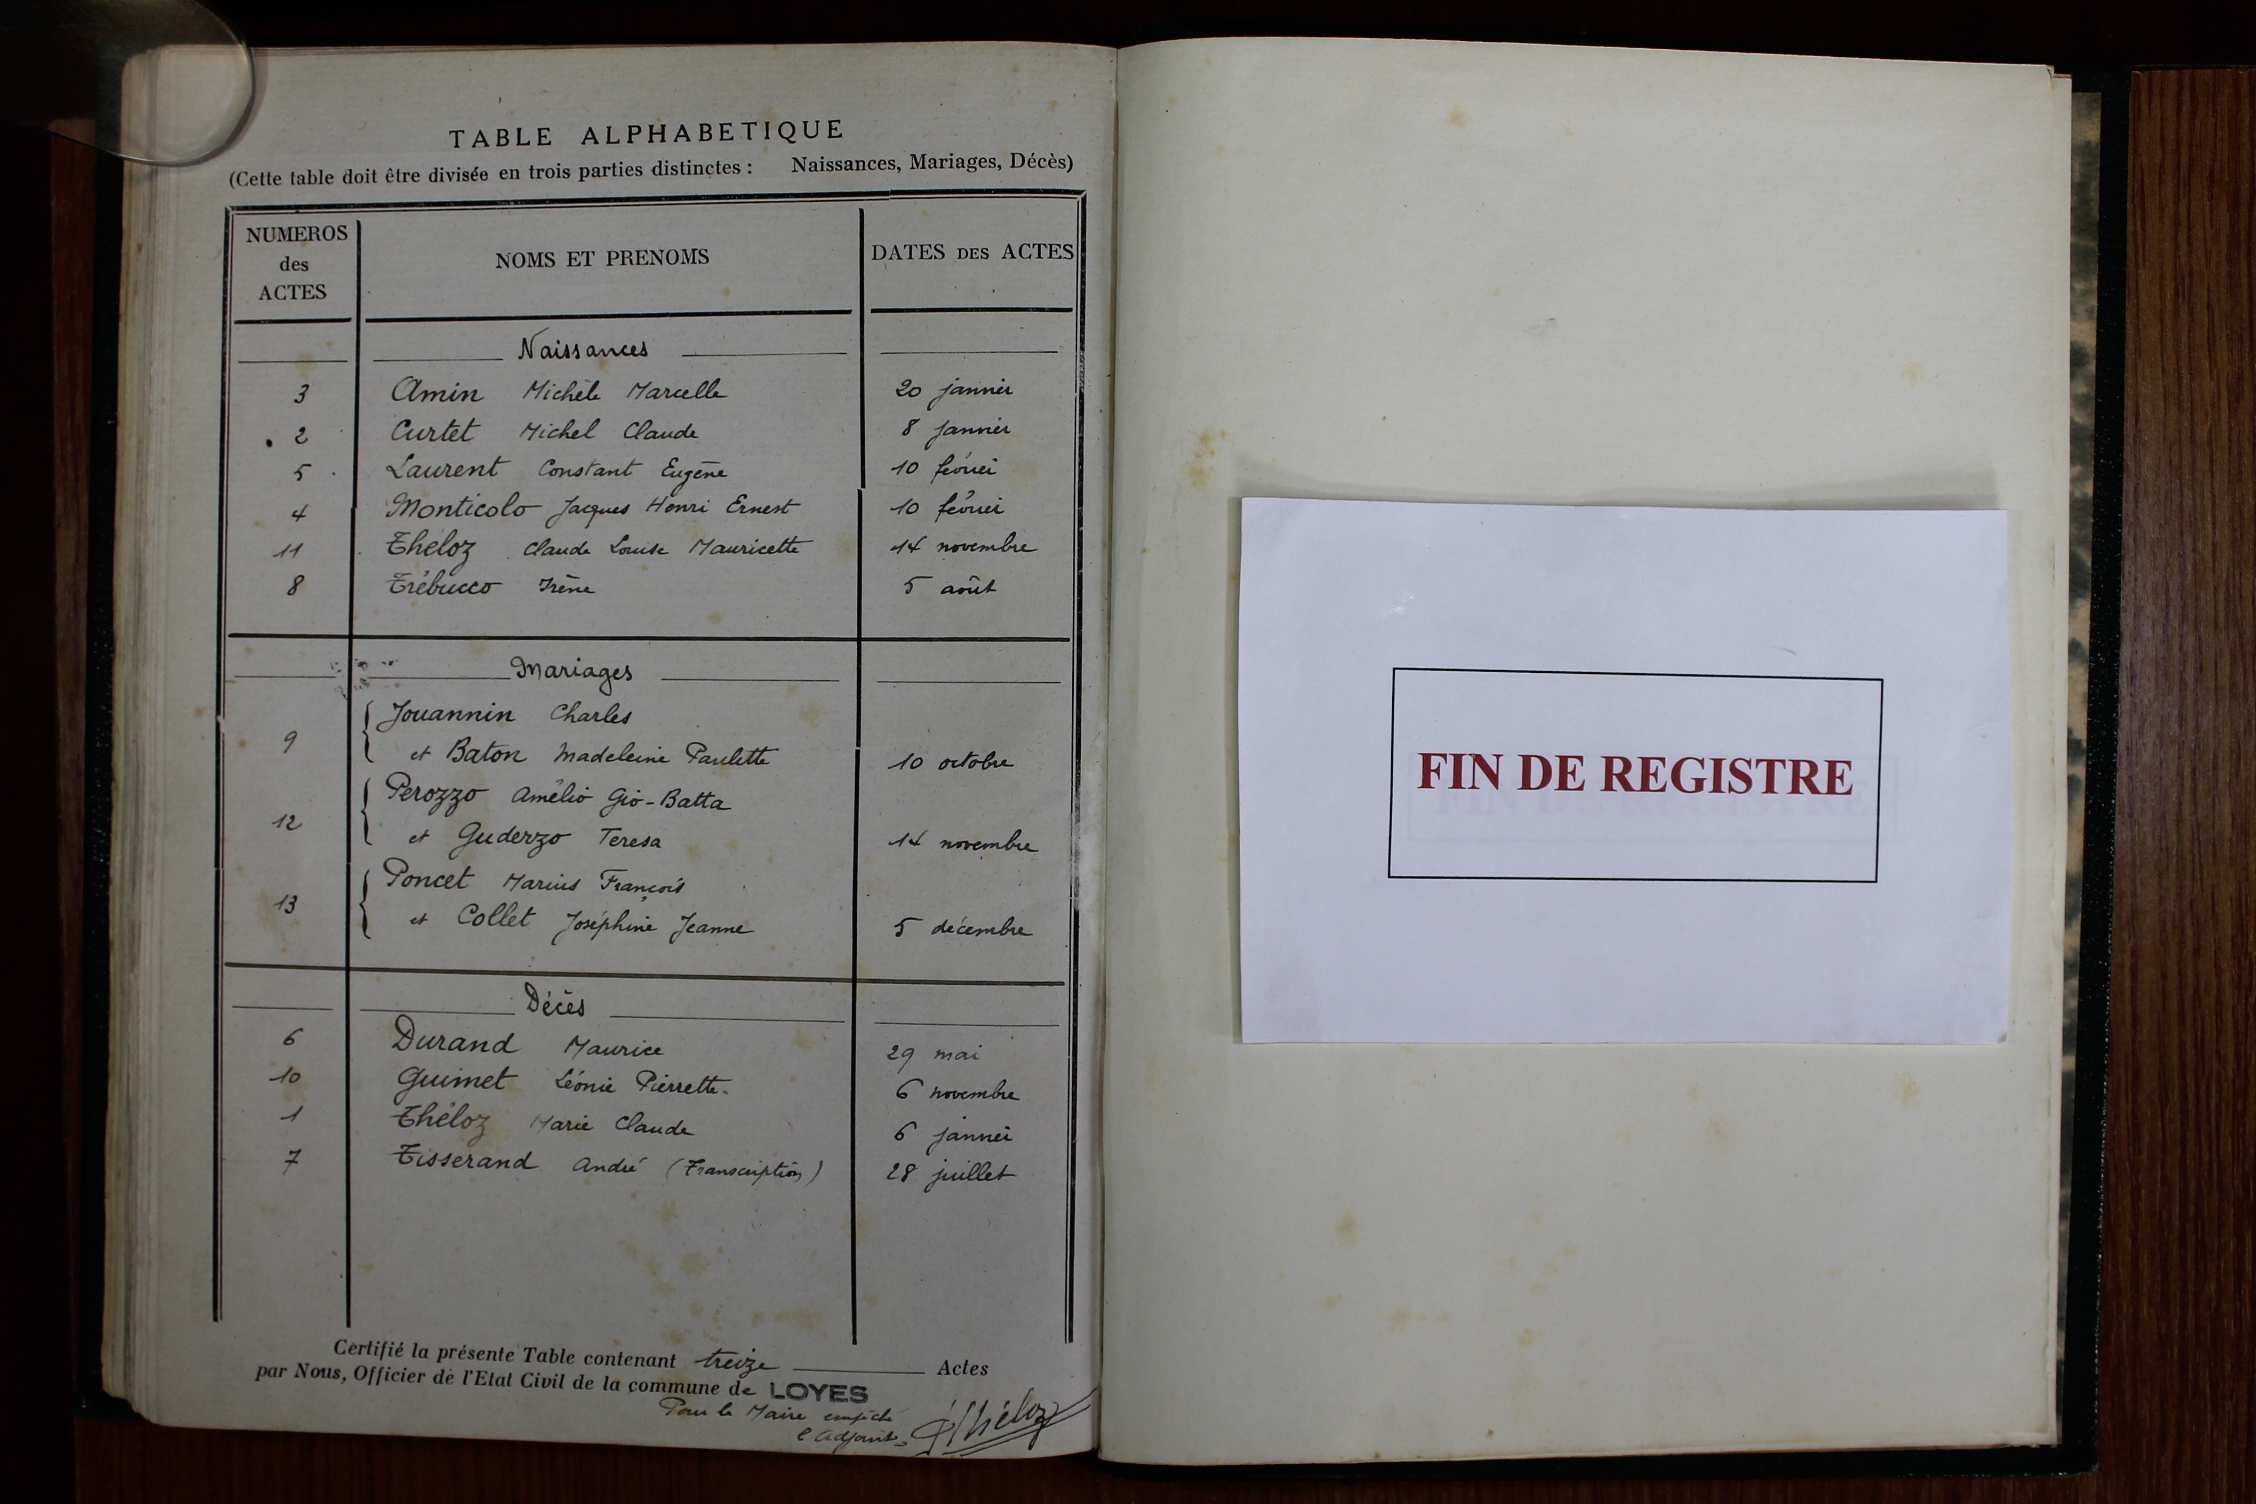 TABLE ALPHABETIQUE
(Cette table doit être divisée en trois parties distinctes : Naissances, Mariages, Décès)
NUMEROS des ACTES NOMS ET PRENOMS DATES DES ACTES
Naissances
3 Amin Michèle Marcelle 20 janvier
2 Curtet Michel Claude 8 janvier
5 Laurent Constant Eugène 10 février
4 Monticolo Jacques Henri Ernest 10 février
11 Théloz Claude Louise Mauricette 14 novembre
8 Trébucco Irène 5 août
Mariages
Jouannin Charles
9 et Baton Madeleine Paulette 10 octobre
Perozzo Amélio Gio-Batta
12 et Guderzo Teresa 14 novembre
Poncet Marius François
13 et Collet Joséphine Jeanne 5 décembre
Décès
6 Durand Maurice 29 mai
10 Guimet Léonie Pierrette 6 novembre
1 Théloz Marie Claude 6 janvier
7 Tisserand André (Transcription) 28 juillet
Certifié la présente Table contenant treize Actes
par Nous, Officier de l'Etat Civil de la commune de LOYES
Pour le Maire empêché
l'Adjoint
Théloz
FIN DE REGISTRE